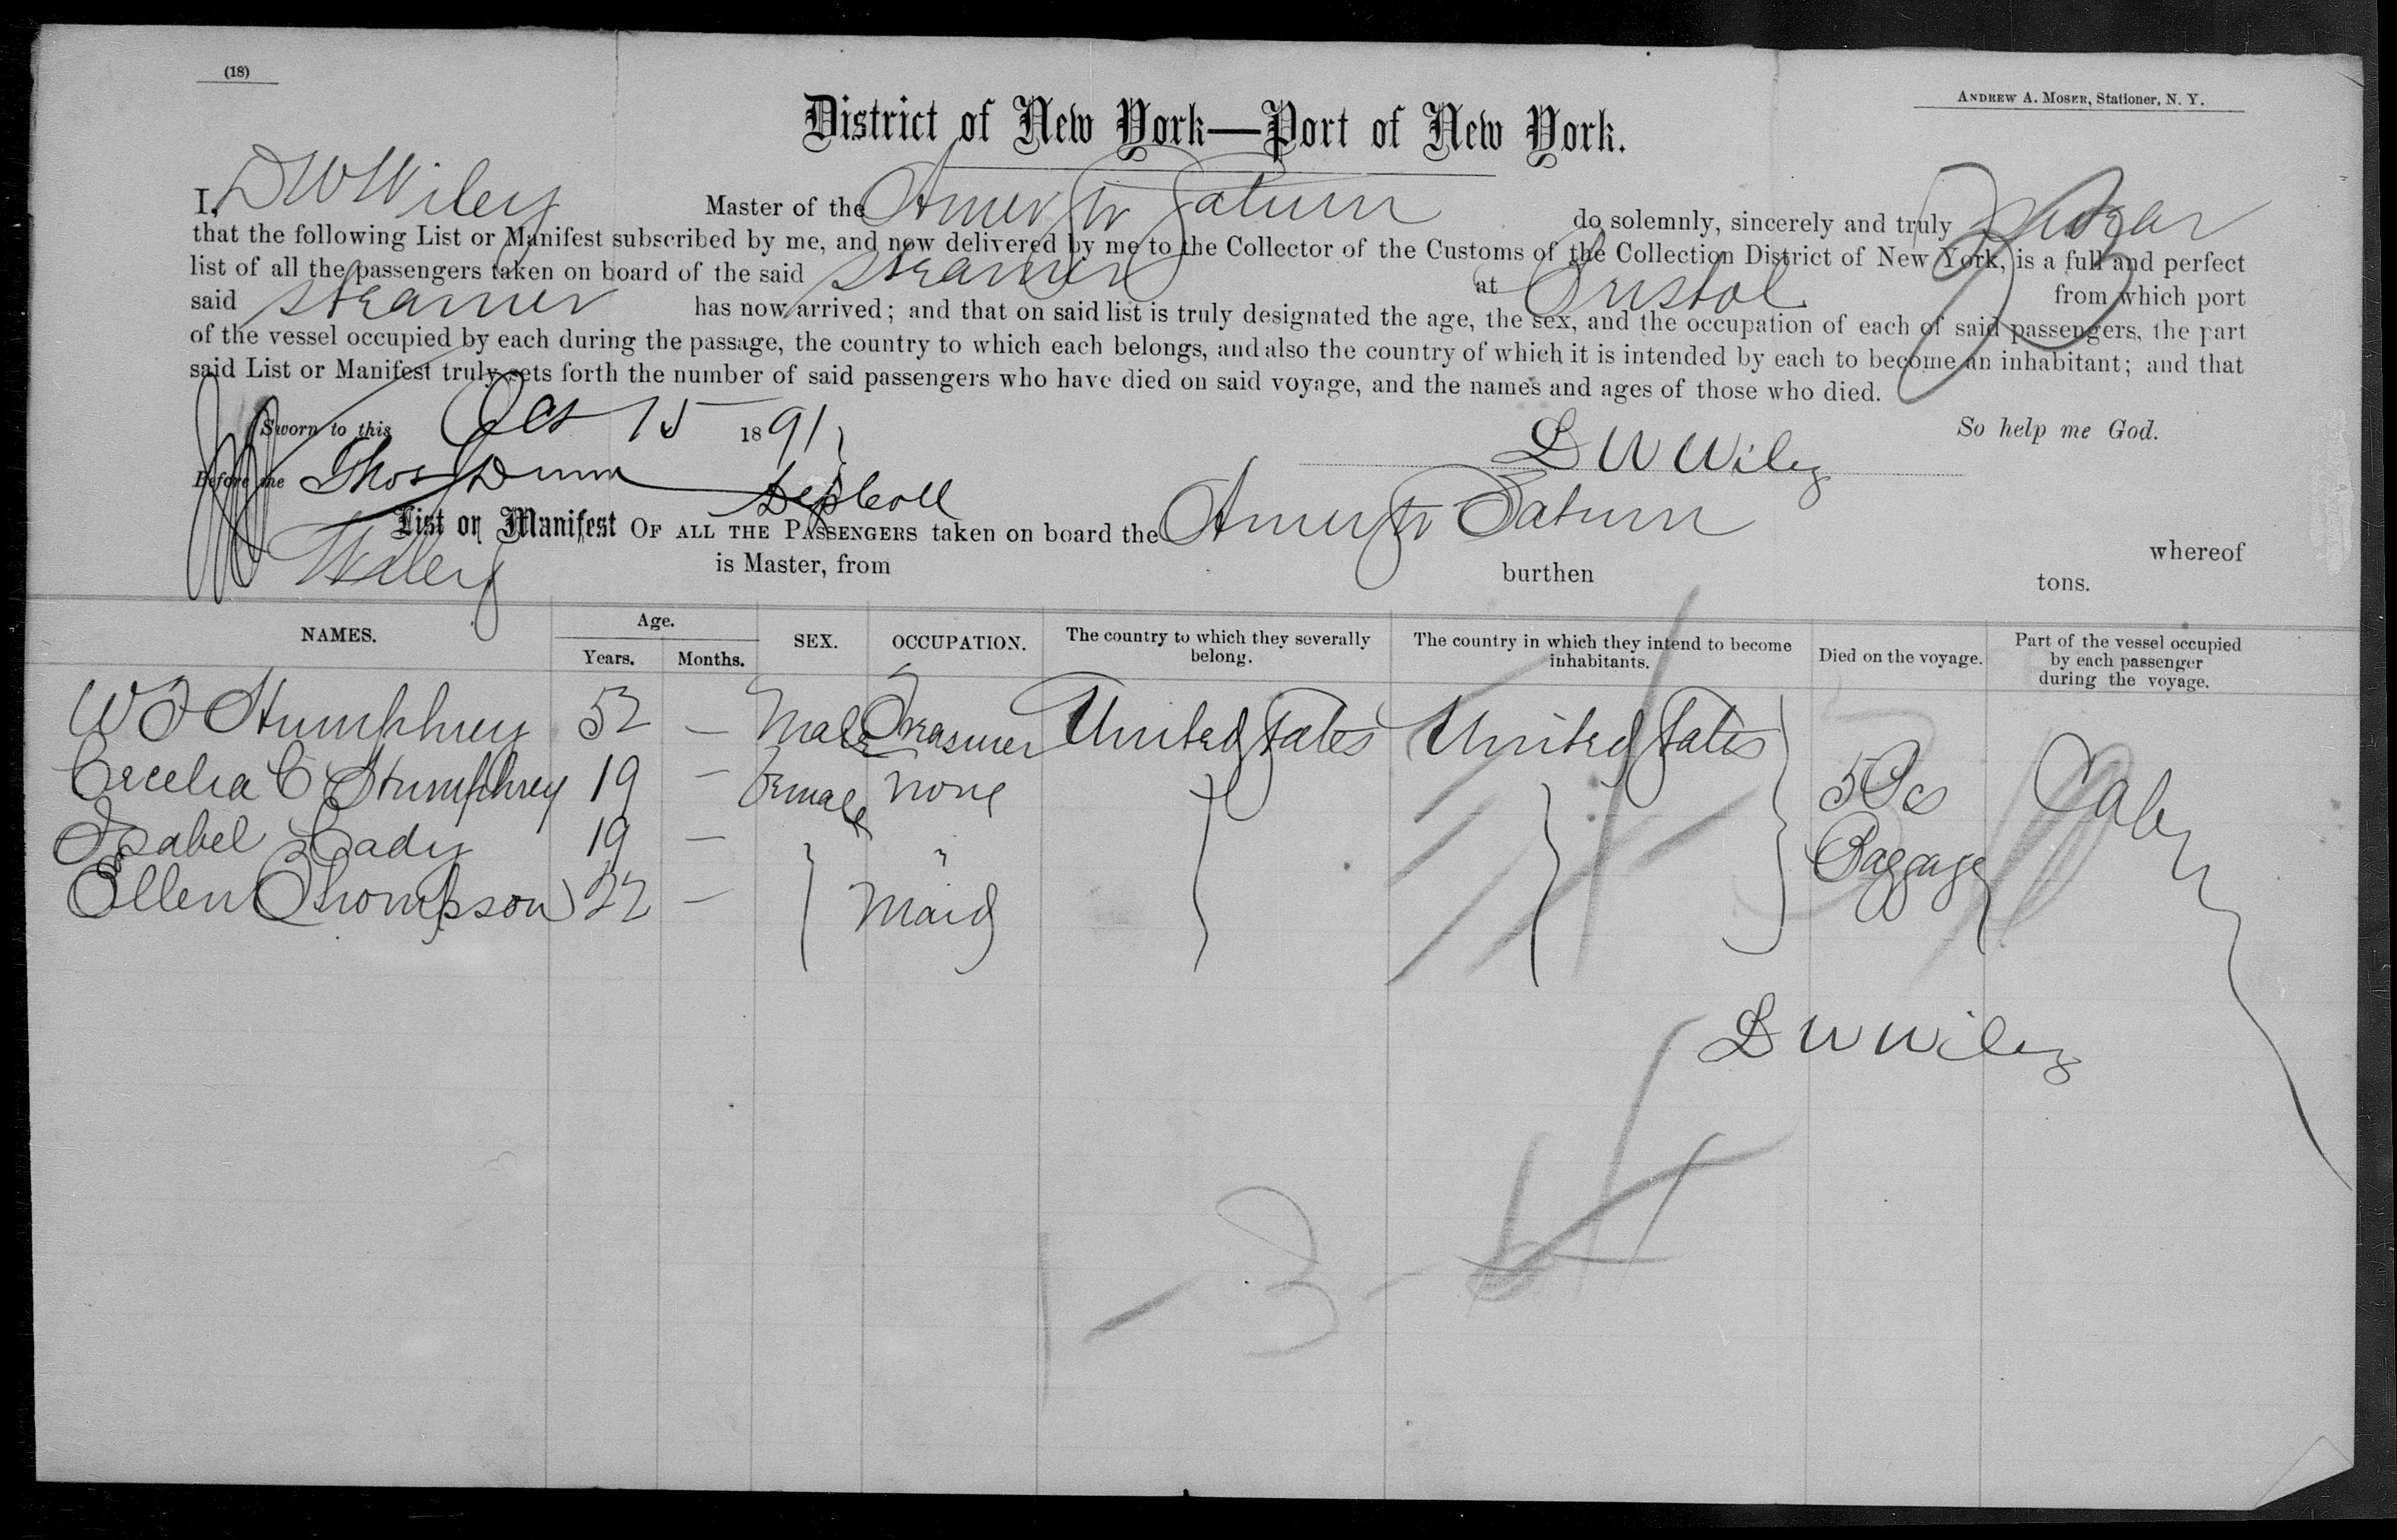 (18)
ANDREW A. MOSER, Stationer, N. Y.
District of New York—Port of New York.
I, D W Wiley Master of the Amer Str Saturn do solemnly, sincerely and truly swear
that the following List or Manifest subscribed by me, and now delivered by me to the Collector of the Customs of the Collection District of New York, is a full and perfect
list of all the passengers taken on board of the said steamer at Bristol from which port
said steamer has now arrived; and that on said list is truly designated the age, the sex, and the occupation of each of said passengers, the part
of the vessel occupied by each during the passage, the country to which each belongs, and also the country of which it is intended by each to become an inhabitant; and that
said List or Manifest truly sets forth the number of said passengers who have died on said voyage, and the names and ages of those who died.
Sworn to this Oct 15 1891 So help me God.
Before me Thos Dunn Dep Coll D W Wiley
List or Manifest OF ALL THE PASSENGERS taken on board the Amer Str Saturn whereof
Wiley is Master, from burthen tons.
NAMES. Age. Years. Months. SEX. OCCUPATION. The country to which they severally belong. The country in which they intend to become inhabitants. Died on the voyage. Part of the vessel occupied by each passenger during the voyage.
W F Humphrey 52 — Male Treasurer United States United States
Cecelia C Humphrey 19 — Female None 5 Pcs
Isabel Cady 19 — " Baggage
Ellen Thompson 22 — Maid
D W Wiley
3